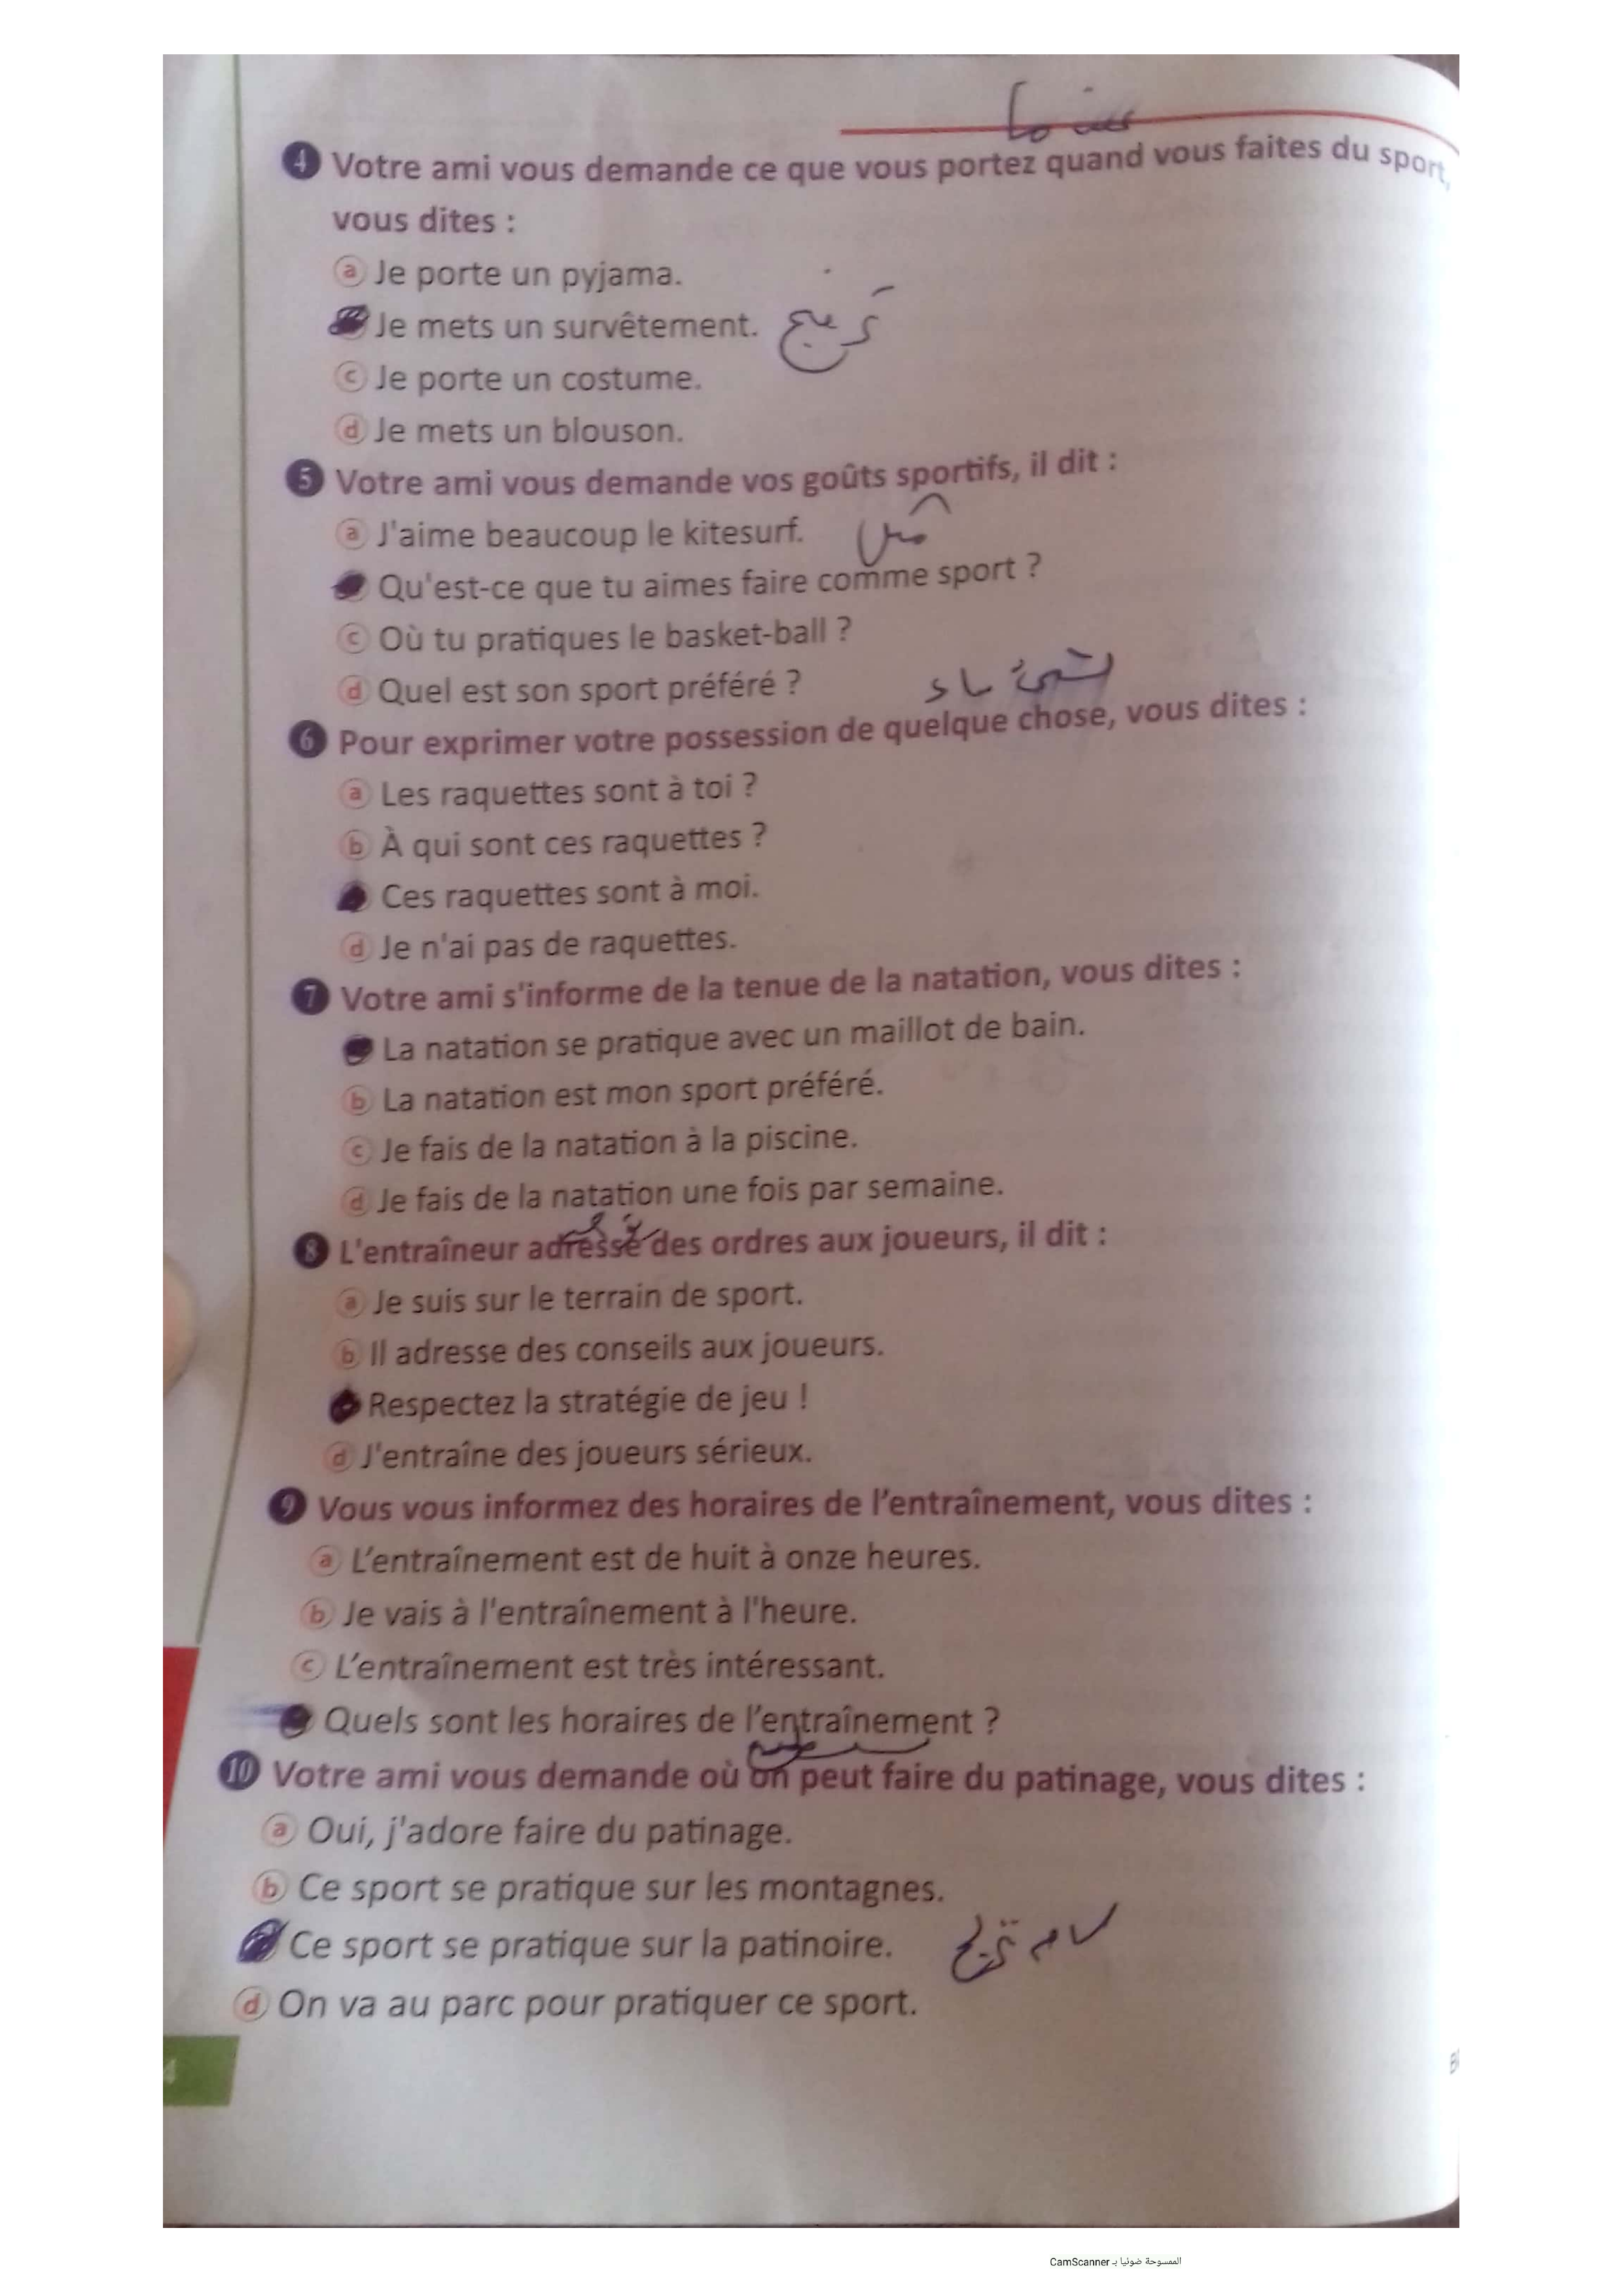 4 Votre ami vous demande ce que vous portez quand vous faites du sport,
vous dites :
a Je porte un pyjama.
Je mets un survêtement.
c Je porte un costume.
d Je mets un blouson.
5 Votre ami vous demande vos goûts sportifs, il dit :
a J'aime beaucoup le kitesurf.
Qu'est-ce que tu aimes faire comme sport ?
c Où tu pratiques le basket-ball ?
d Quel est son sport préféré ?
6 Pour exprimer votre possession de quelque chose, vous dites :
a Les raquettes sont à toi ?
b À qui sont ces raquettes ?
Ces raquettes sont à moi.
d Je n'ai pas de raquettes.
7 Votre ami s'informe de la tenue de la natation, vous dites :
La natation se pratique avec un maillot de bain.
b La natation est mon sport préféré.
c Je fais de la natation à la piscine.
d Je fais de la natation une fois par semaine.
8 L'entraîneur adresse des ordres aux joueurs, il dit :
a Je suis sur le terrain de sport.
b Il adresse des conseils aux joueurs.
Respectez la stratégie de jeu !
d J'entraîne des joueurs sérieux.
9 Vous vous informez des horaires de l'entraînement, vous dites :
a L'entraînement est de huit à onze heures.
b Je vais à l'entraînement à l'heure.
c L'entraînement est très intéressant.
Quels sont les horaires de l'entraînement ?
10 Votre ami vous demande où on peut faire du patinage, vous dites :
a Oui, j'adore faire du patinage.
b Ce sport se pratique sur les montagnes.
Ce sport se pratique sur la patinoire.
d On va au parc pour pratiquer ce sport.
4
الممسوحة ضوئيا بـ CamScanner